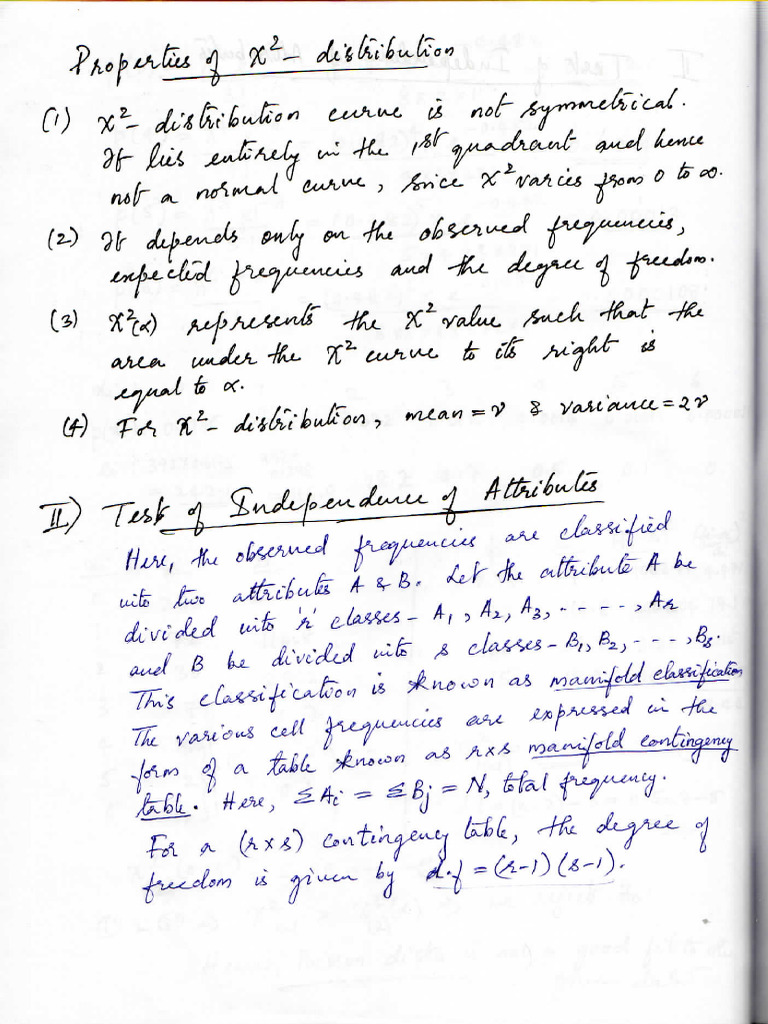 Properties of χ²- distribution
(1) χ²- distribution curve is not symmetrical.
It lies entirely in the 1st quadrant and hence
not a normal curve, since χ² varies from 0 to ∞.
(2) It depends only on the observed frequencies,
expected frequencies and the degree of freedom.
(3) χ²(α) represents the χ² value such that the
area under the χ² curve to its right is
equal to α.
(4) For χ²- distribution, mean = ν & variance = 2ν
II) Test of Independence of Attributes
Here, the observed frequencies are classified
into two attributes A & B. Let the attribute A be
divided into 'r' classes - A₁, A₂, A₃, - - - - -, Aᵣ
and B be divided into s classes - B₁, B₂, - - - , Bₛ.
This classification is known as manifold classification
The various cell frequencies are expressed in the
form of a table known as r×s manifold contingency
table. Here, ΣAᵢ = ΣBⱼ = N, total frequency.
For a (r×s) contingency table, the degree of
freedom is given by d.f = (r-1)(s-1).